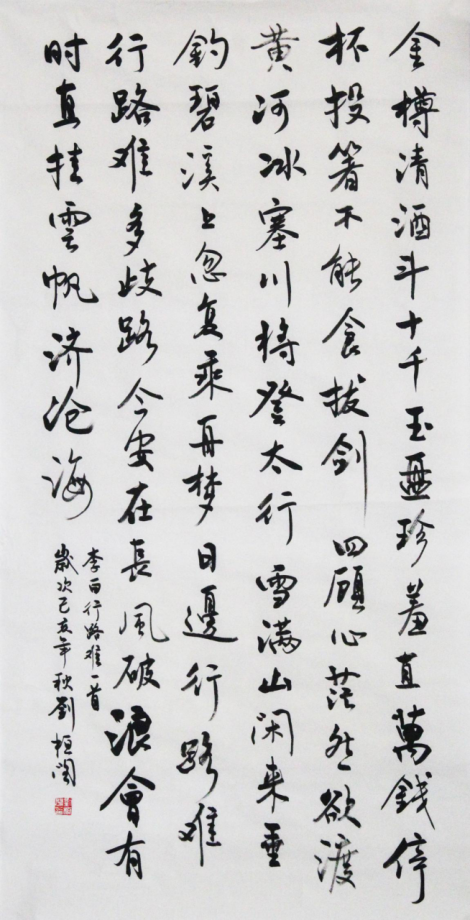 金樽清酒斗十千玉盘珍羞直萬錢停
杯投箸不能食拔剑四顾心茫然欲渡
黄河冰塞川将登太行雪满山闲来垂
钓碧溪上忽复乘舟梦日邊行路难
行路难多歧路今安在長风破浪會有
时直挂雲帆济沧海
李白行路难一首
歲次己亥年秋劉恒